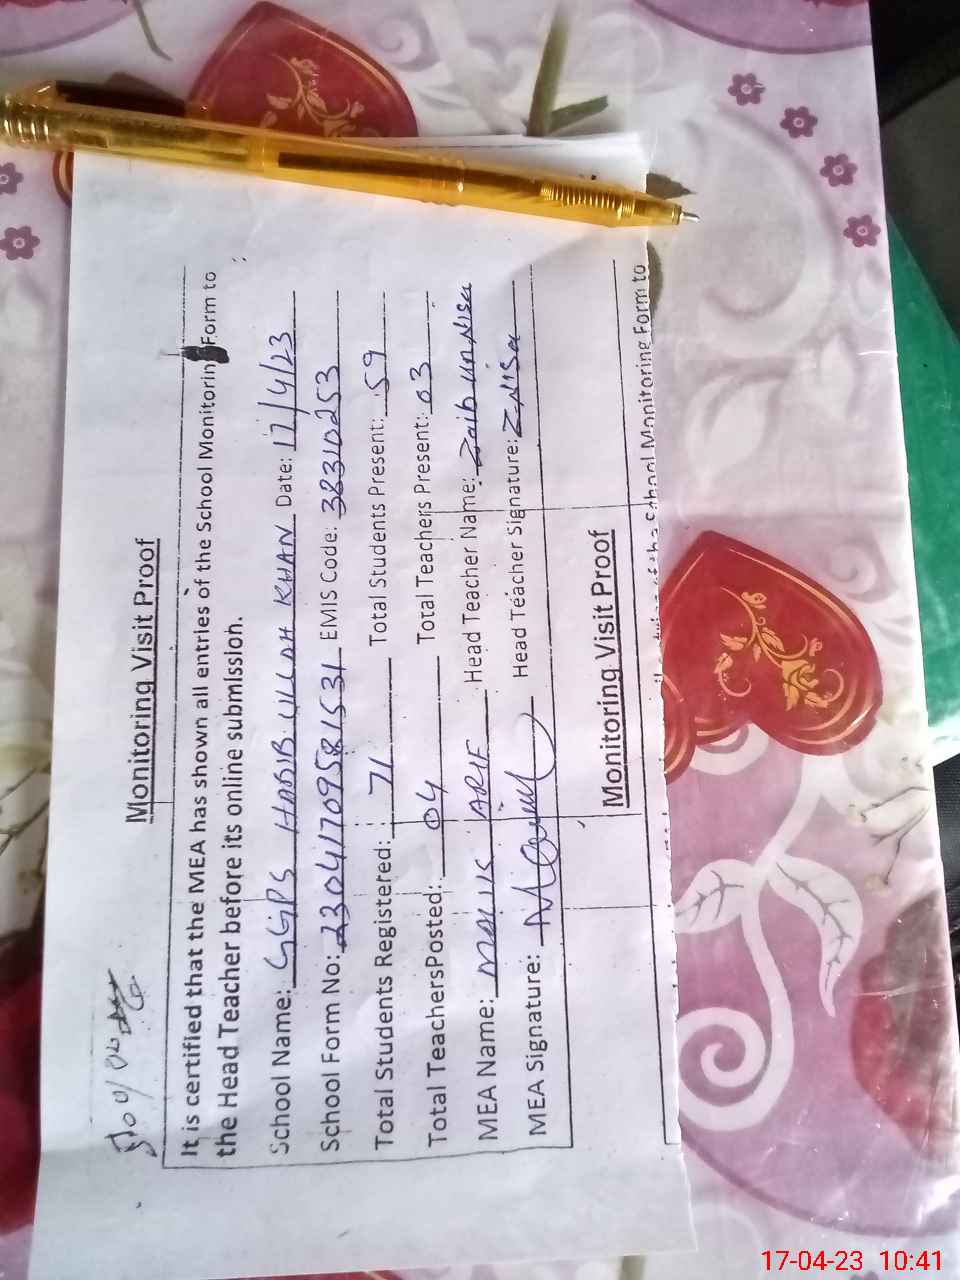 Monitoring Visit Proof
It is certified that the MEA has shown all entries of the School Monitorin Form to
the Head Teacher before its online submission.
School Name: GGPS HABIB ULLAH KHAN Date: 17/4/23
School Form No: 23041709581531 EMIS Code: 38310253
Total Students Registered: 71 Total Students Present: 59
Total TeachersPosted: 04 Total Teachers Present: 03
MEA Name: ARIF Head Teacher Name: Zaib un Nisa
MEA Signature: Head Teacher Signature: Z-NiSa
Monitoring Visit Proof
of the School Monitoring Form to
17-04-23 10:41